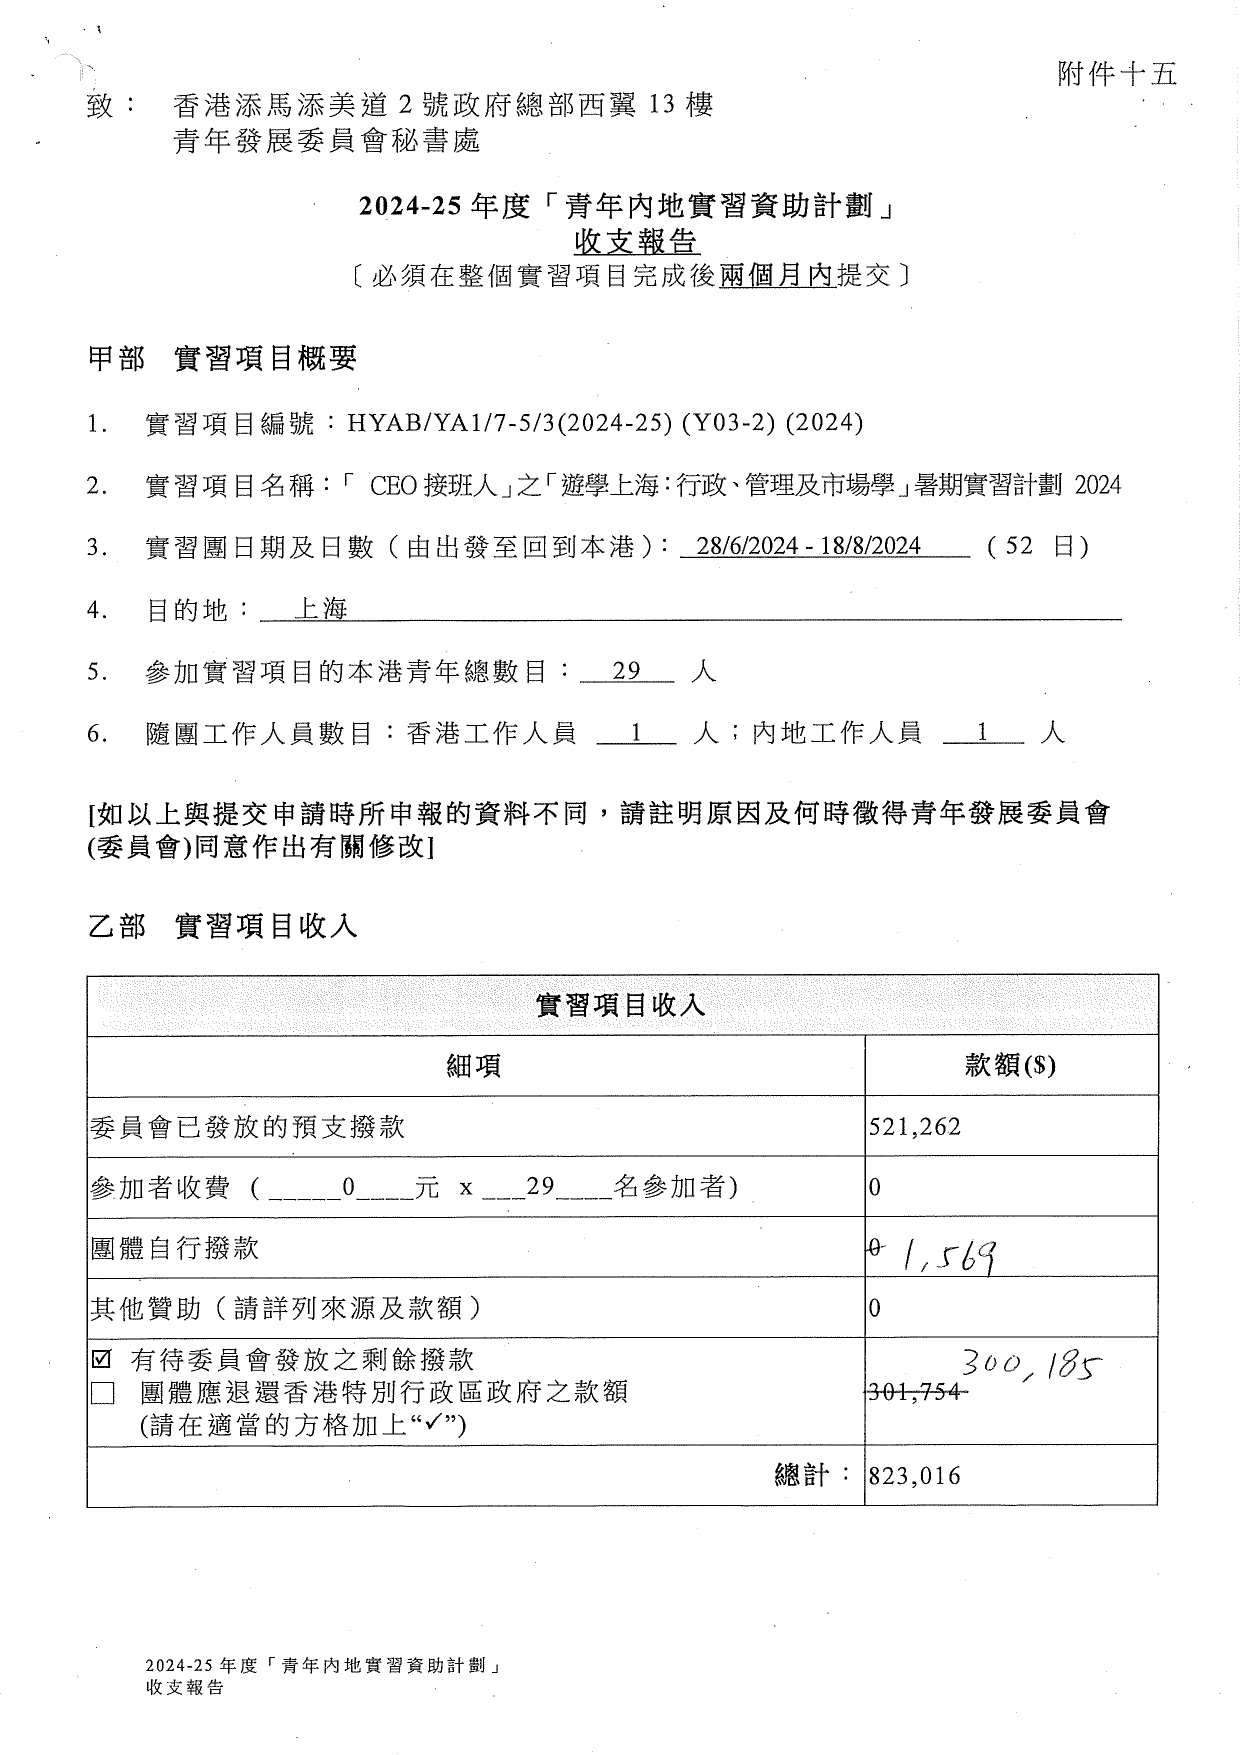 附件十五
致： 香港添馬添美道 2 號政府總部西翼 13 樓
青年發展委員會秘書處
2024-25 年度「青年內地實習資助計劃」
收支報告
〔必須在整個實習項目完成後兩個月內提交〕
甲部 實習項目概要
1. 實習項目編號：HYAB/YA1/7-5/3(2024-25) (Y03-2) (2024)
2. 實習項目名稱：「 CEO 接班人」之「遊學上海：行政、管理及市場學」暑期實習計劃 2024
3. 實習團日期及日數（由出發至回到本港）： 28/6/2024 - 18/8/2024 （52 日）
4. 目的地： 上海
5. 參加實習項目的本港青年總數目： 29 人
6. 隨團工作人員數目：香港工作人員 1 人；內地工作人員 1 人
[如以上與提交申請時所申報的資料不同，請註明原因及何時徵得青年發展委員會
(委員會)同意作出有關修改]
乙部 實習項目收入
實習項目收入
細項 款額($)
委員會已發放的預支撥款 521,262
參加者收費 ( _____0____元 x ___29____名參加者) 0
團體自行撥款 0 1,569
其他贊助（請詳列來源及款額） 0
☑ 有待委員會發放之剩餘撥款 300,185
☐ 團體應退還香港特別行政區政府之款額 301,754
(請在適當的方格加上“✓”)
總計： 823,016
2024-25 年度「青年內地實習資助計劃」
收支報告